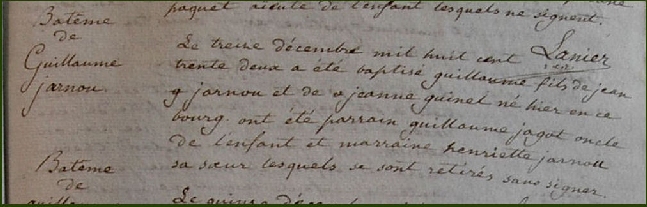 paquet aieule de l'enfant lesquels ne signent.
Lanier
Batême
de
Guillaume
jarnou.
Le treize décembre mil huit cent
trente deux a été baptisé guillaume fils de jean
g jarnou et de jeanne quinet né hier en ce
bourg. ont été parrain guillaume jagot oncle
de l'enfant et marraine henriette jarnou
sa sœur lesquels se sont retirés sans signer.
Batême
de
Le quinze